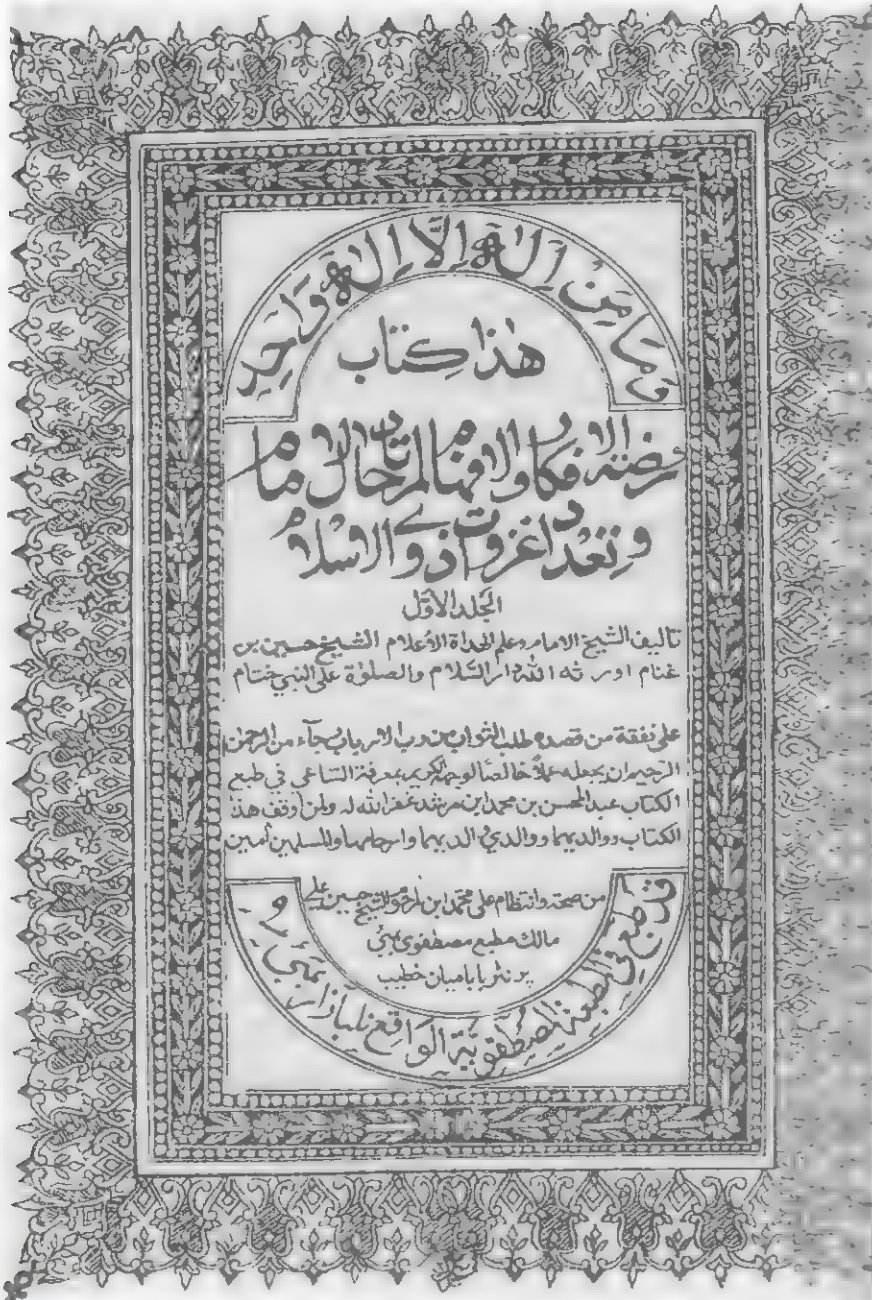 وَمَا مِنْ اِلٰهٍ اِلَّا اِلٰهٌ وَاحِدٌ
هذا كتاب
روضة الافكار والافهام لمرتاد حال الامام
وتعداد غزوات ذوي الاسلام
الجلد الاول
تاليف الشيخ الامام وعلم الهداة الاعلام الشيخ حسين بن
غنام اورثه الله دار السلام والصلوة على النبي ختام
على نفقة من قصده طلب الثواب من رب الارباب رجآء من الرحمن
الرحيم ان يجعله عملا خالصا لوجهه الكريم بمعرفة الساعى في طبع
الكتاب عبد المحسن بن محمد ابن مرشد غفر الله له ولمن اوقف هذا
الكتاب ووالديهما ووالدي والديهما وارحامهما والمسلمين آمين
من صحة وانتظام على محمد ابن المرحوم الشيخ حسين علي
مالك مطبع مصطفوى بمبئ
پرنٹر بابا ميان خطيب
قد طبع في المطبعة المصطفوية الواقع بلبازار بمبئى